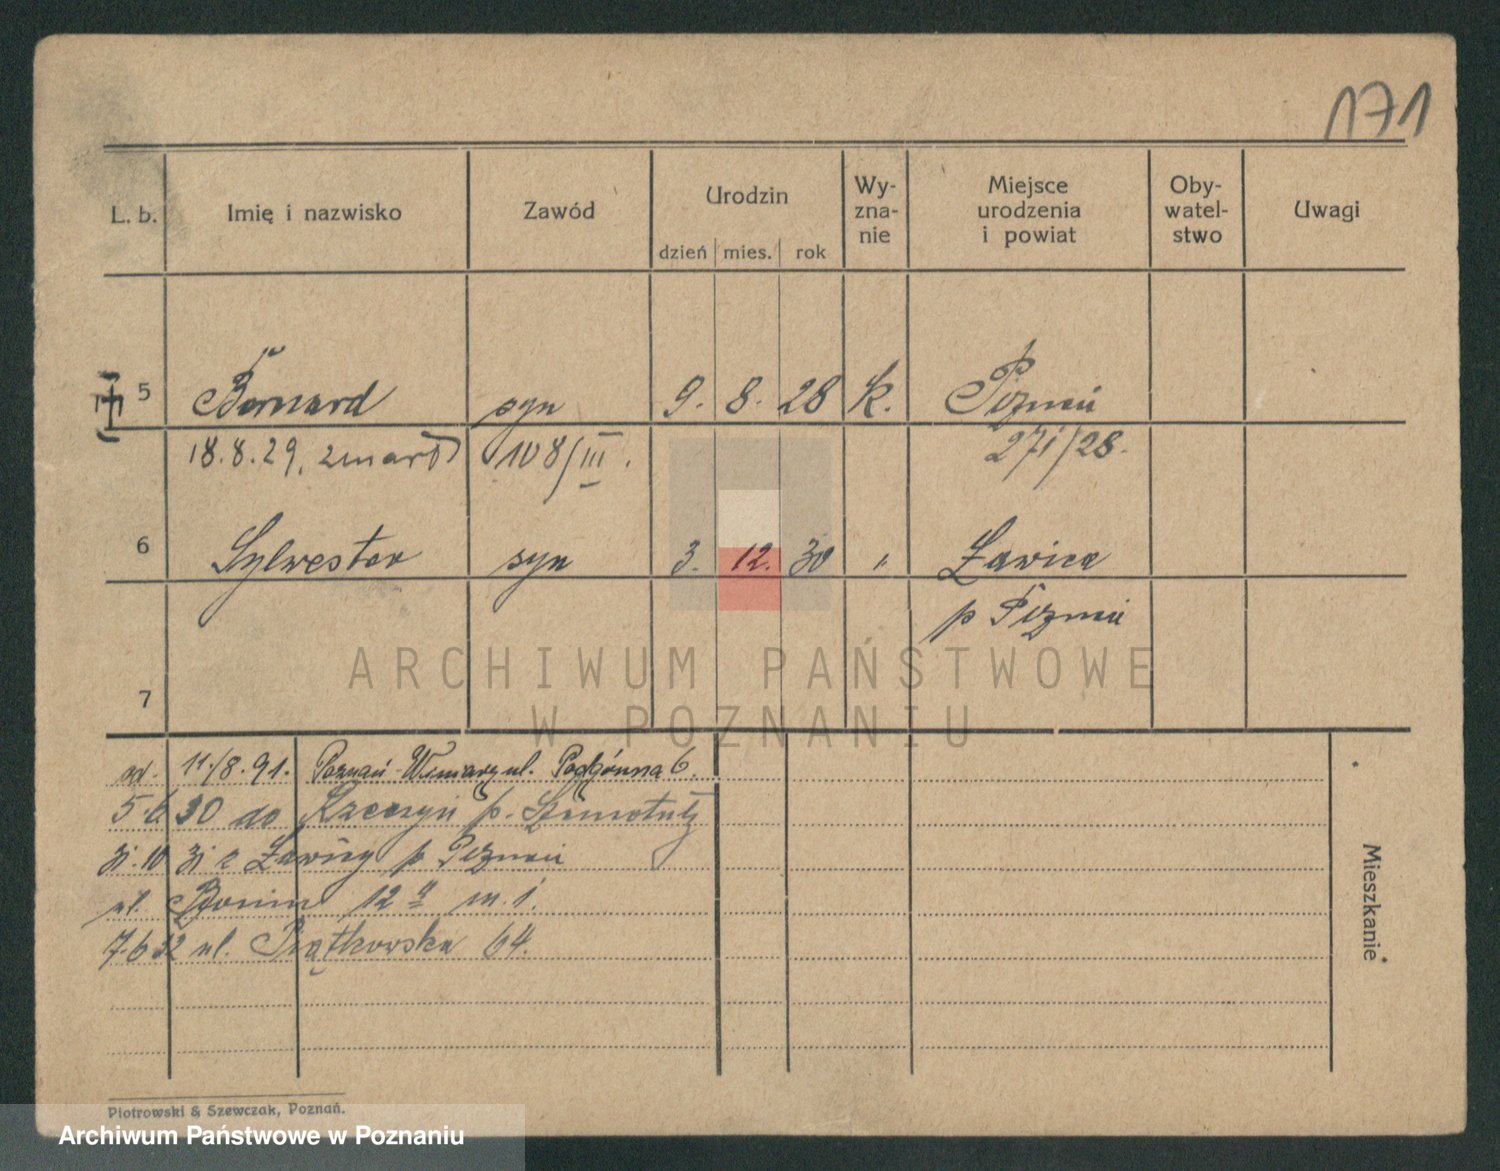 171
L. b. Imię i nazwisko Zawód Urodzin dzień mies. rok Wy-zna-nie Miejsce urodzenia i powiat Oby-watel-stwo Uwagi
5 Bernard syn 9. 8. 28 k. Poznań
18.8.29. zmarł 108/III. 271/28.
6 Sylwester syn 3. 12. 30 " Ławica
p Poznań
ARCHIWUM PAŃSTWOWE
7
W POZNANIU
od. 11./8.91. Poznań-Winiary ul. Podgórna 6.
5.6 30 do p. Szamotuły
31.10 31 z Ławicy p Poznań
ul. Bonin 12 a m. 1.
7.6 32 ul. Piątkowska 64.
Mieszkanie
Piotrowski & Szewczak, Poznań.
Archiwum Państwowe w Poznaniu